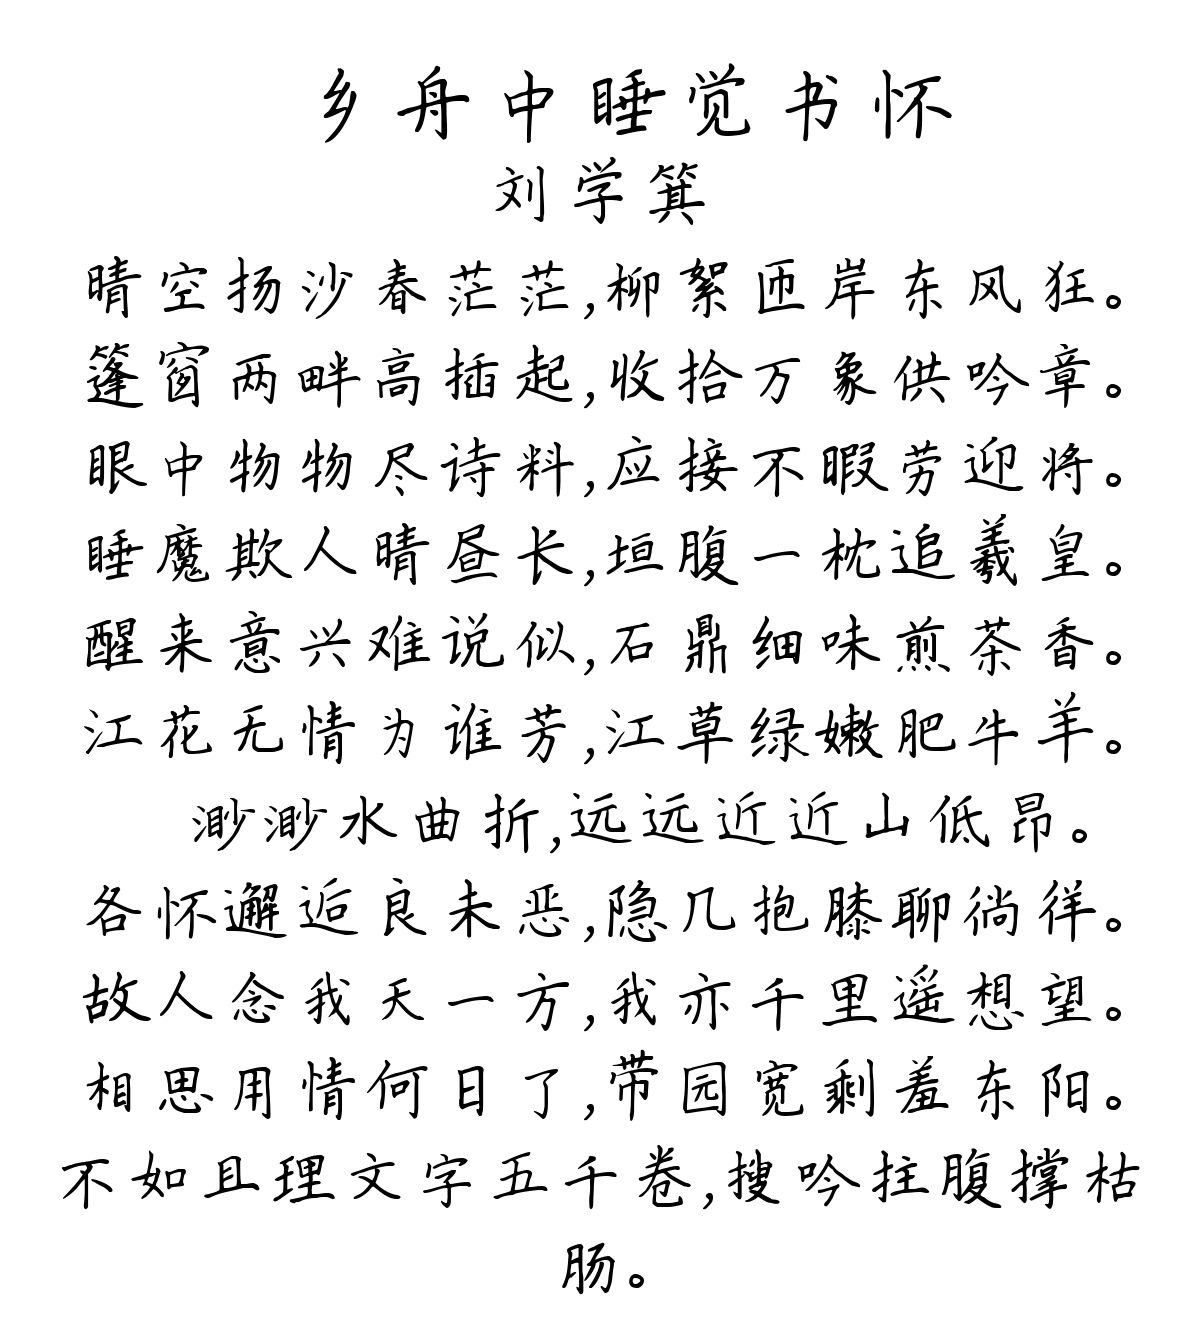 乡舟中睡觉书怀
刘学箕
晴空扬沙春茫茫,柳絮匝岸东风狂。
篷窗两畔高插起,收拾万象供吟章。
眼中物物尽诗料,应接不暇劳迎将。
睡魔欺人晴昼长,垣腹一枕追羲皇。
醒来意兴难说似,石鼎细味煎茶香。
江花无情为谁芳,江草绿嫩肥牛羊。
渺渺水曲折,远远近近山低昂。
各怀邂逅良未恶,隐几抱膝聊徜徉。
故人念我天一方,我亦千里遥想望。
相思用情何日了,带园宽剩羞东阳。
不如且理文字五千卷,搜吟拄腹撑枯
肠。